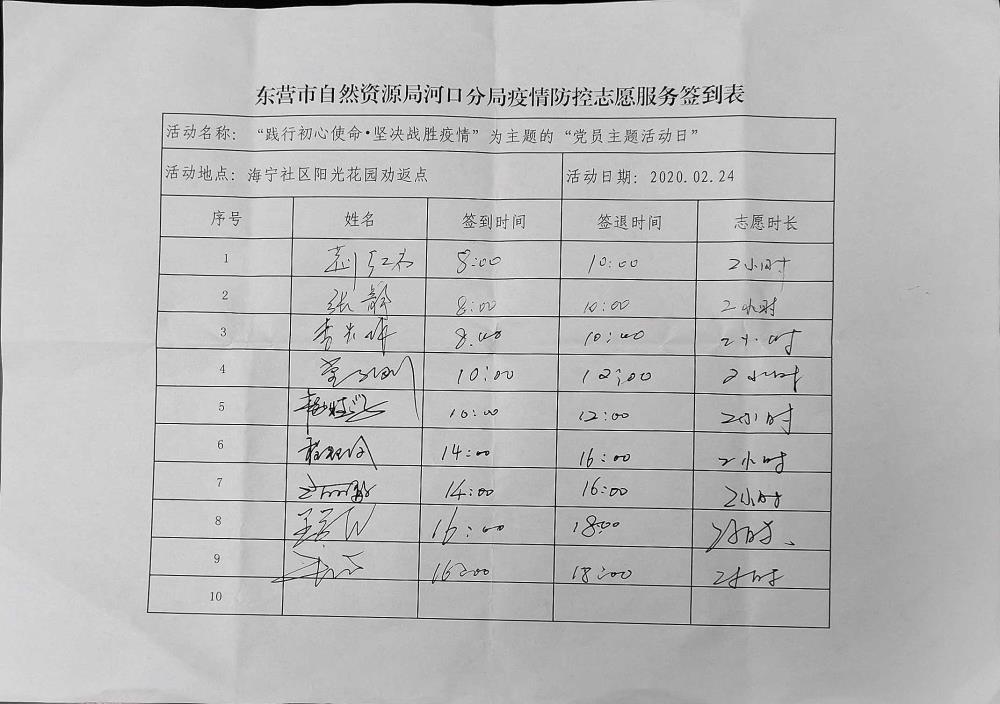 东营市自然资源局河口分局疫情防控志愿服务签到表
活动名称：“践行初心使命·坚决战胜疫情”为主题的“党员主题活动日”
活动地点：海宁社区阳光花园劝返点 活动日期：2020.02.24
序号 姓名 签到时间 签退时间 志愿时长
1 8:00 10:00 2小时
2 张静 8:00 10:00 2小时
3 8:00 10:00 2小时
4 10:00 12:00 2小时
5 10:00 12:00 2小时
6 14:00 16:00 2小时
7 14:00 16:00 2小时
8 16:00 18:00 2小时
9 16:00 18:00 2小时
10